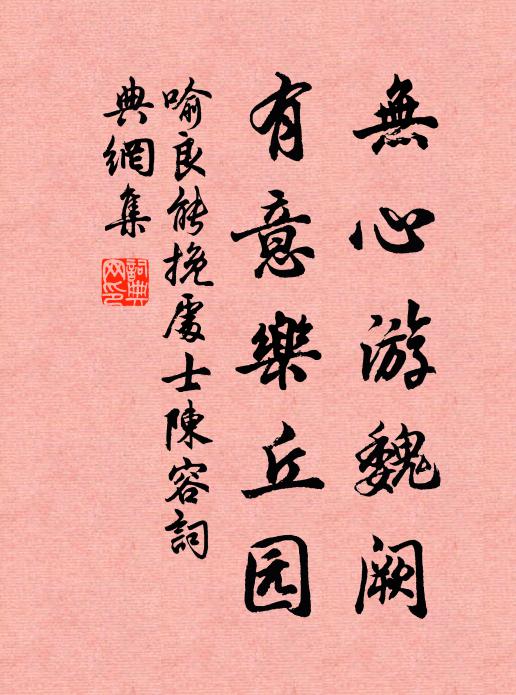 無心游魏阙
有意樂丘园
喻良能挽處士陳容詞
典網集
詞典
网印